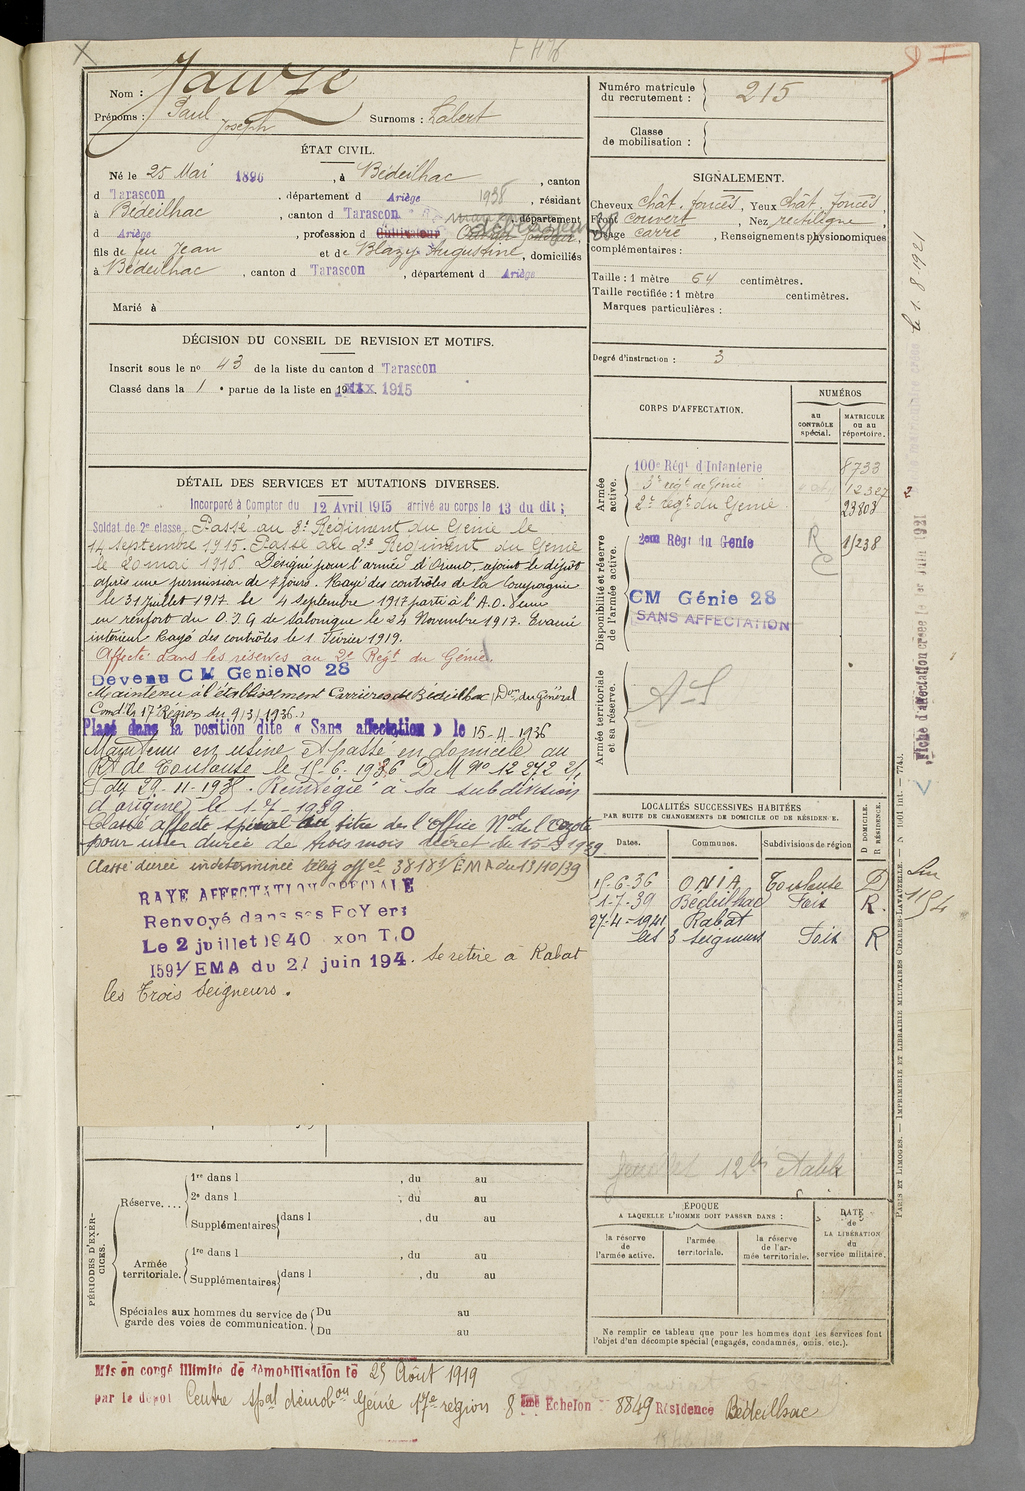 F
Nom : Jauze
Prénoms : Paul Joseph Surnoms : Labert
ÉTAT CIVIL.
Né le 25 Mai 1896, à Bédeilhac, canton
d Tarascon, département d Ariège 1938, résidant
à Bédeilhac, canton d Tarascon, département
d Ariège, profession d Cultivateur
fils de feu Jean et de Blazy Augustine, domiciliés
à Bédeilhac, canton d Tarascon, département d Ariège
Marié à
DÉCISION DU CONSEIL DE REVISION ET MOTIFS.
Inscrit sous le nº 43 de la liste du canton d Tarascon
Classé dans la 1 e partie de la liste en 1915
DÉTAIL DES SERVICES ET MUTATIONS DIVERSES.
Incorporé à Compter du 12 Avril 1915 arrivé au corps le 13 du dit ;
Soldat de 2e classe, Passé au 3e Régiment du Génie le
14 septembre 1915. Passé au 2e Régiment du Génie
le 20 mai 1916. Désigné pour l'armée d'Orient, rejoint le dépôt
après une permission de 7 jours. Rayé des contrôles de la Compagnie
le 31 juillet 1917 le 4 septembre 1917 parti à l'A.O. Venu
en renfort du O.I.G de Salonique le 24 Novembre 1917. Evacué
intérieur Rayé des contrôles le 1 Février 1919.
Affecté dans les réserves au 2e Régt du Génie.
Devenu C M Genie No 28
Maintenu à l'établissement Carrières de Bédeilhac, Don du Général
Comdt la 17e Région du 9/3/1936.
Placé dans la position dite « Sans affectation » le 15-4-1936
Maintenu en usine. A passé en domicile au
Rt de Toulouse le 15-6-1936 DM No 12 272 2/1
du 29-11-193. Réintégré à sa subdivision
d'origine le 1-7-1939
Classé affecté spécial au titre de l'Office Nal de l'Azote
pour une durée de trois mois décret du 15-3 1939
Classé durée indéterminée télég offel 3818 1/EMA du 13/10/39
RAYE AFFECTATION SPECIALE
Renvoyé dans ses FoYers
Le 2 juillet 1940 xon T.O
1591/EMA du 27 juin 194. Se retire à Rabat
les Trois Seigneurs.
PÉRIODES D'EXERCICES.
Réserve....
1re dans l , du au
2e dans l , du au
Supplémentaires dans l , du au
Armée territoriale.
1re dans l , du au
Supplémentaires dans l , du au
Spéciales aux hommes du service de garde des voies de communication.
Du au
Du au
Mis en congé illimité de démobilisation le 25 Août 1919
par le dépôt Centre spal démobon Génie 17e région 8 ème Echelon 8849 Résidence Bédeilhac
Numéro matricule du recrutement : 215
Classe de mobilisation :
SIGNALEMENT.
Cheveux chât. foncés, Yeux chât. foncés,
Front couvert, Nez rectiligne,
Visage carré, Renseignements physionomiques
complémentaires :
Taille : 1 mètre 64 centimètres.
Taille rectifiée : 1 mètre centimètres.
Marques particulières :
Degré d'instruction : 3
CORPS D'AFFECTATION.
NUMÉROS
AU CONTRÔLE spécial.
MATRICULE OU AU répertoire.
Armée active.
100e Régt d'Infanterie 8733
3e régt de Génie 12327
2e régt du Génie 23803
Disponibilité et réserve de l'armée active.
2eme Régt du Genie R 1/238
C
CM Génie 28
SANS AFFECTATION
Armée territoriale et sa réserve.
AS
LOCALITÉS SUCCESSIVES HABITÉES
PAR SUITE DE CHANGEMENTS DE DOMICILE OU DE RÉSIDENCE.
Dates. Communes. Subdivisions de région D DOMICILE. R RÉSIDENCE.
15-6-36 ONIA Toulouse D
1-7-39 Bédeilhac Foix R.
27-4-1941 Rabat
les 3 Seigneurs Foix R
ÉPOQUE
A LAQUELLE L'HOMME DOIT PASSER DANS :
la réserve de l'armée active.
l'armée territoriale.
la réserve de l'armée territoriale.
DATE de LA LIBÉRATION du service militaire.
Ne remplir ce tableau que pour les hommes dont les services font
l'objet d'un décompte spécial (engagés, condamnés, omis, etc.).
Fiche d'affectation créée le 1er Juin 1921
le 1-8-1921
1154
PARIS ET LIMOGES. — IMPRIMERIE ET LIBRAIRIE MILITAIRES CHARLES-LAVAUZELLE. — N 1001 Int. — 7743.